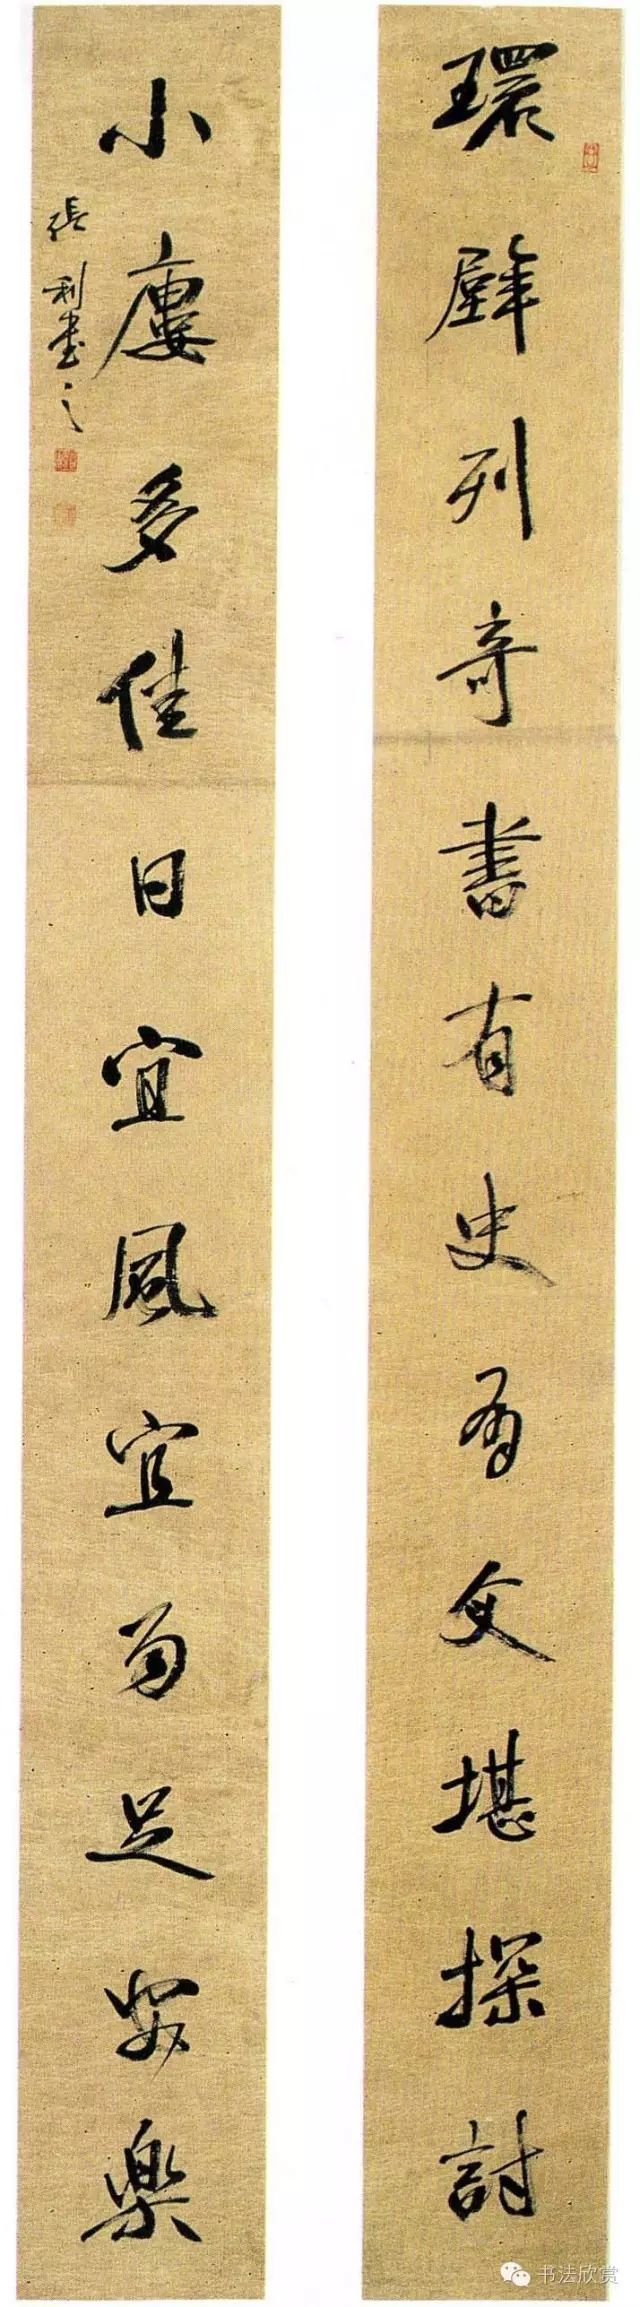 環壁列奇書有史有文堪探討
小廔多佳日宜風宜雨足安樂
張利書之
书法欣赏